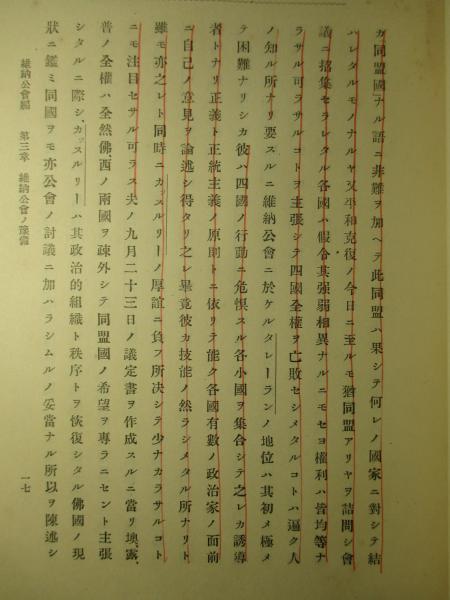 ガ同盟國ナル語ニ非難ヲ加ヘテ此同盟ハ果シテ何レノ國家ニ對シテ結
ハレタルモノナルヤ又平和克復ノ今日ニ至ルモ猶同盟アリヤヲ詰問シ會
議ニ招集セラレタル各國ハ假令其强弱相異ナルニモセヨ權利ハ皆均等ナ
ラサル可ラサルコトヲ主張シテ四國全權ヲ亡敗セシメタルコトハ遍ク人
ノ知ル所ナリ要スルニ維納公會ニ於ケルタレーランノ地位ハ其初メ極メ
テ困難ナリシカ彼ハ四國ノ行動ニ危惧スル各小國ヲ集合シテ之レカ誘導
者トナリ正義ト正統主義ノ原則トニ依リテ能ク各國有數ノ政治家ノ面前
ニ自己ノ意見ヲ論述シ得タリ之レ畢竟彼カ技能ノ然ラシメタル所ナリト
雖モ亦之レト同時ニカッスルリーノ厚誼ニ負フ所決シテ少ナカラサルコト
ニモ注目セサル可ラス夫ノ九月二十三日ノ議定書ヲ作成スルニ當リ墺露
普ノ全權ハ全然佛西ノ兩國ヲ疎外シテ同盟國ノ希望ヲ專ラニセント主張
シタルニ際シカッスルリーハ其政治的組織ト秩序トヲ恢復シタル佛國ノ現
狀ニ鑑ミ同國ヲモ亦公會ノ討議ニ加ハラシムルノ妥當ナル所以ヲ陳述シ
維納公會編 第三章 維納公會ノ豫備
一七